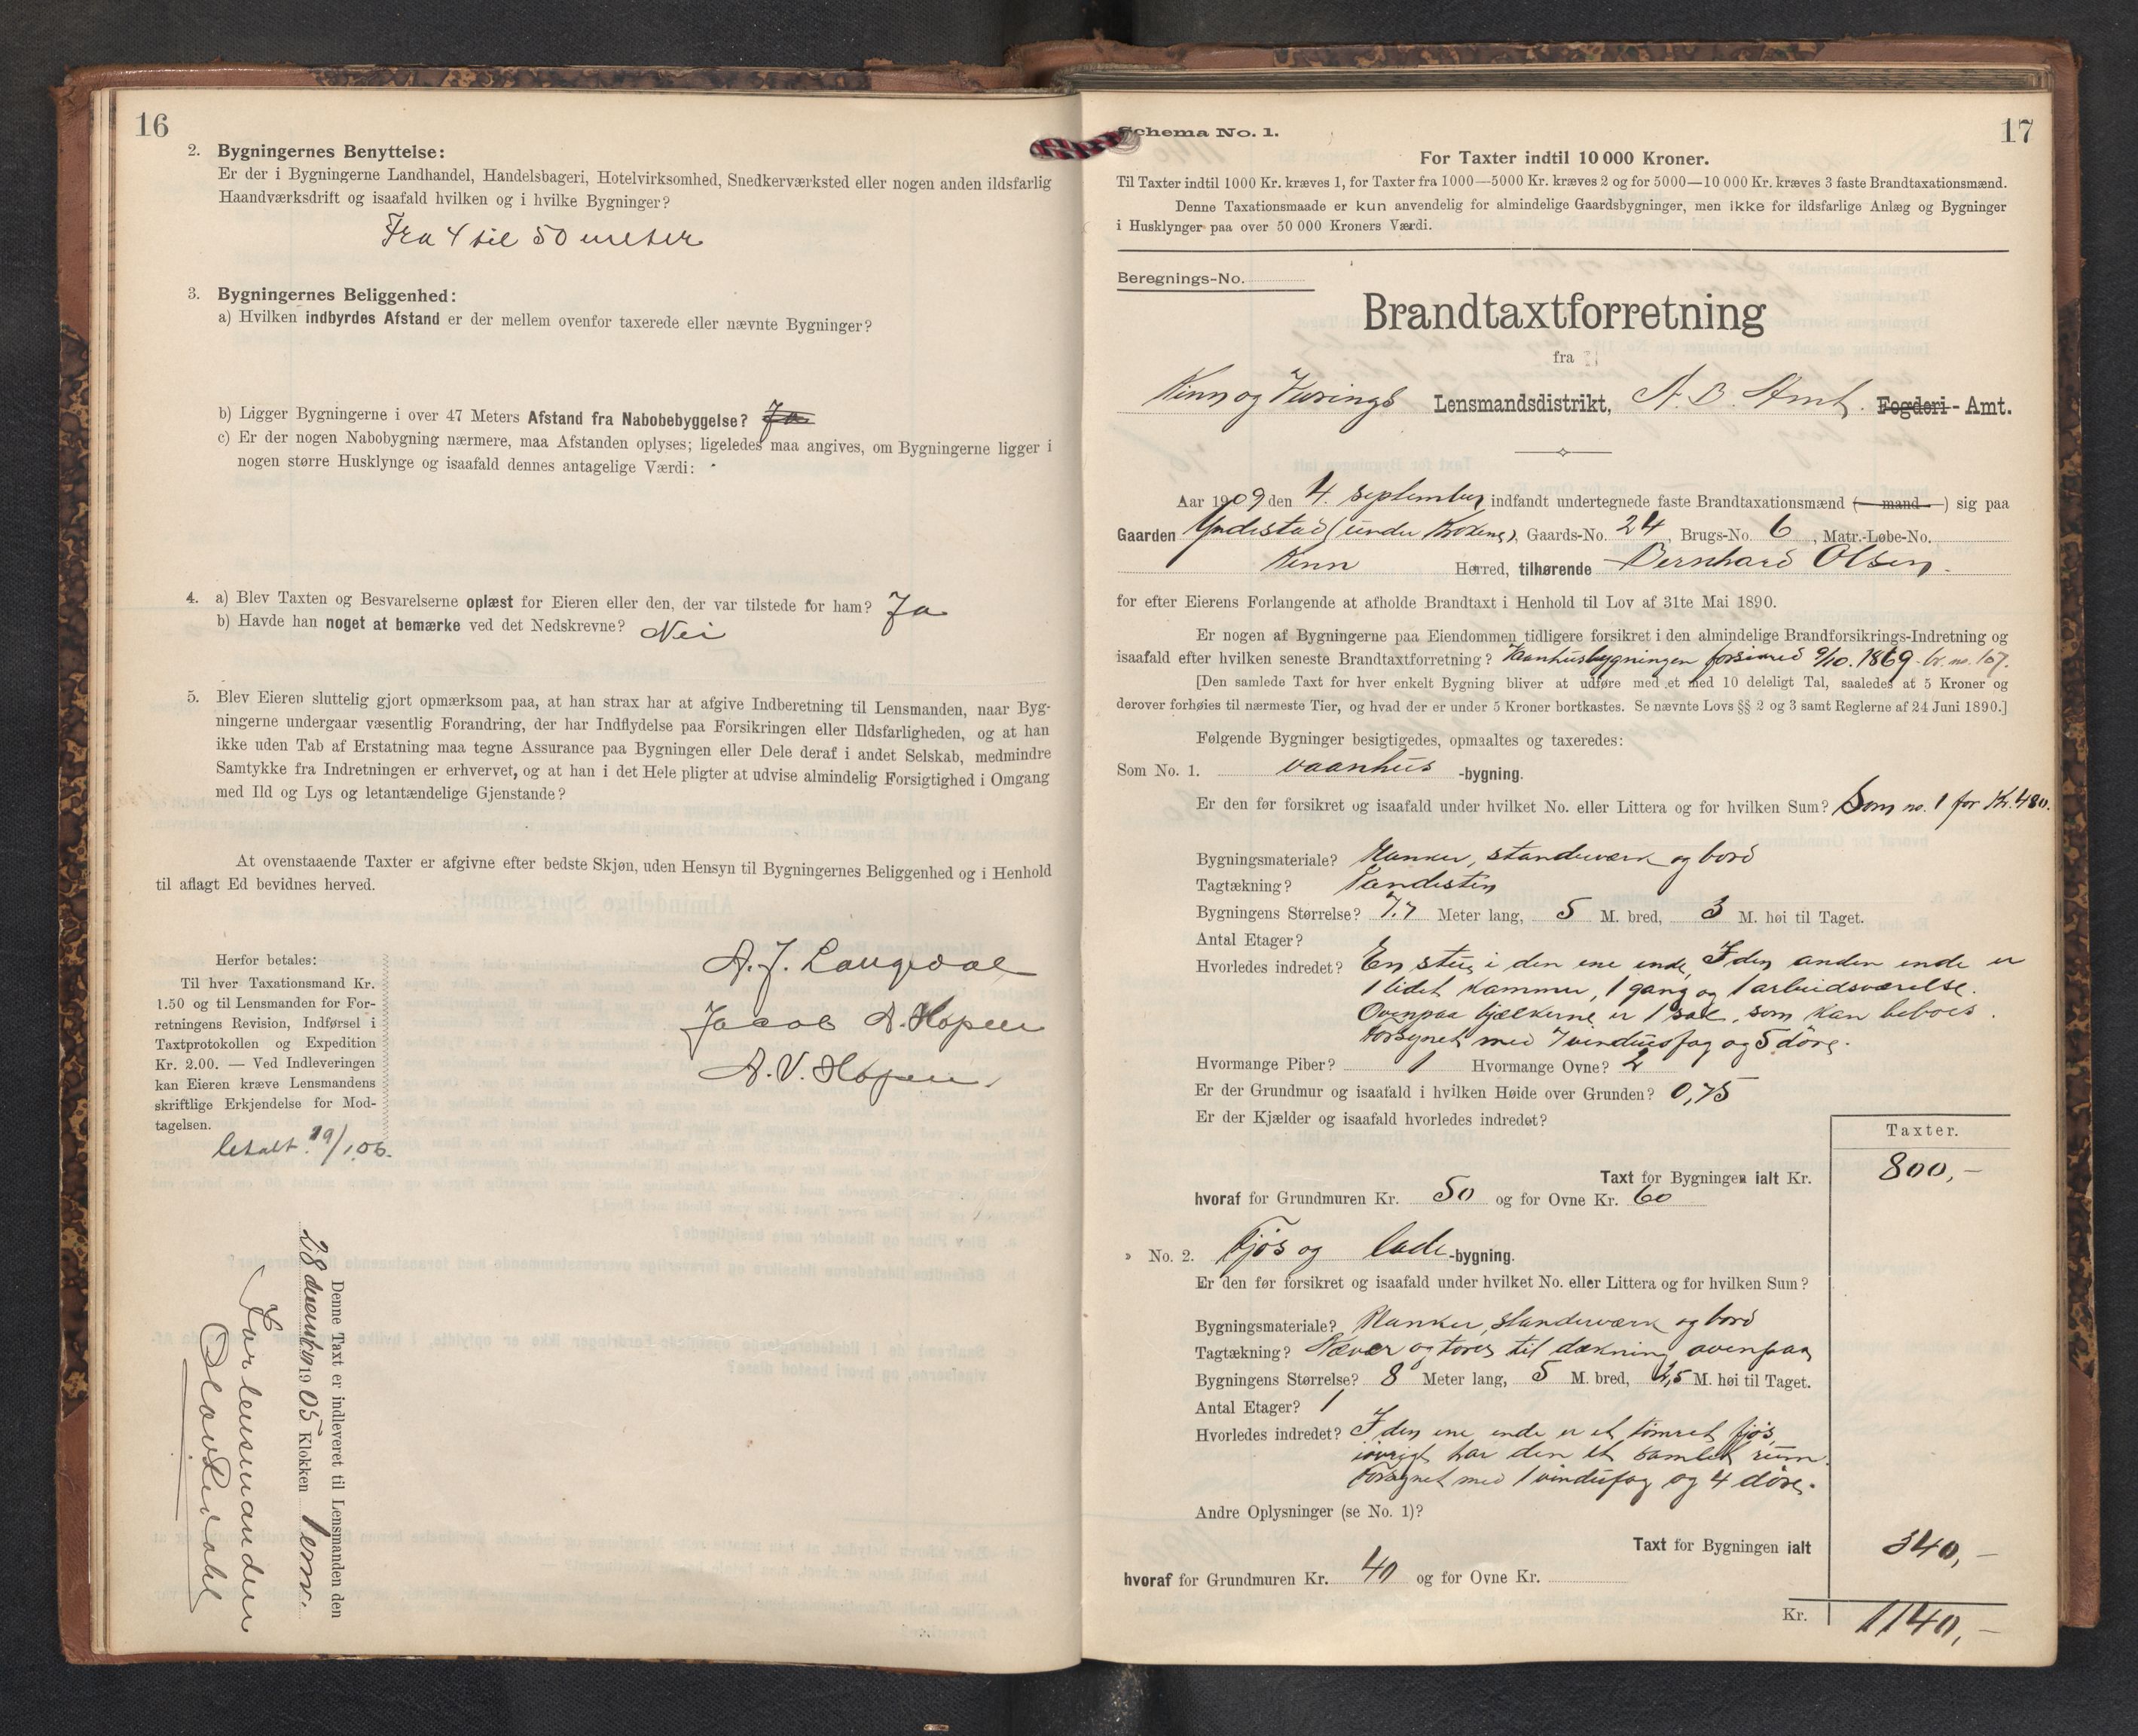 16
2. Bygningernes Benyttelse:
Er der i Bygningerne Landhandel, Handelsbageri, Hotelvirksomhed, Snedkerværksted eller nogen anden ildsfarlig
Haandværksdrift og isaafald hvilken og i hvilke Bygninger?
Fra 4 til 50 meter
3. Bygningernes Beliggenhed:
a) Hvilken indbyrdes Afstand er der mellem ovenfor taxerede eller nævnte Bygninger?
b) Ligger Bygningerne i over 47 Meters Afstand fra Nabobebyggelse? Ja
c) Er der nogen Nabobygning nærmere, maa Afstanden oplyses; ligeledes maa angives, om Bygningerne ligger i
nogen større Husklynge og isaafald dennes antagelige Værdi:
4. a) Blev Taxten og Besvarelserne oplæst for Eieren eller den, der var tilstede for ham? Ja
b) Havde han noget at bemærke ved det Nedskrevne? Nei
5. Blev Eieren sluttelig gjort opmærksom paa, at han strax har at afgive Indberetning til Lensmanden, naar Byg-
ningerne undergaar væsentlig Forandring, der har Indflydelse paa Forsikringen eller Ildsfarligheden, og at han
ikke uden Tab af Erstatning maa tegne Assurance paa Bygningen eller Dele deraf i andet Selskab, medmindre
Samtykke fra Indretningen er erhvervet, og at han i det Hele pligter at udvise almindelig Forsigtighed i Omgang
med Ild og Lys og letantændelige Gjenstande?
At ovenstaaende Taxter er afgivne efter bedste Skjøn, uden Hensyn til Bygningernes Beliggenhed og i Henhold
til aflagt Ed bevidnes herved.
Herfor betales:
Til hver Taxationsmand Kr.
1.50 og til Lensmanden for For-
retningens Revision, Indførsel i
Taxtprotokollen og Expedition
Kr. 2.00. — Ved Indleveringen
kan Eieren kræve Lensmandens
skriftlige Erkjendelse for Mod-
tagelsen.
betalt 19/1 06.
A. J. Langedal
Jacob A. Hopen
A. V. Hopen.
Denne Taxt er indleveret til Lensmanden den
28 december 1905 Klokken 1 em.
For lensmanden
17
Schema No. 1.
For Taxter indtil 10 000 Kroner.
Til Taxter indtil 1000 Kr. kræves 1, for Taxter fra 1000—5000 Kr. kræves 2 og for 5000—10 000 Kr. kræves 3 faste Brandtaxationsmænd.
Denne Taxationsmaade er kun anvendelig for almindelige Gaardsbygninger, men ikke for ildsfarlige Anlæg og Bygninger
i Husklynger paa over 50 000 Kroners Værdi.
Beregnings-No.
Brandtaxtforretning
fra
Kinn og Lensmandsdistrikt, N. B. Amt. Fogderi - Amt.
Aar 1909 den 4. september indfandt undertegnede faste Brandtaxationsmænd (— mand —) sig paa
Gaarden Yndestad (under ), Gaards-No. 24, Brugs-No. 6, Matr.-Løbe-No.
Kinn Herred, tilhørende Bernhard Olsen.
for efter Eierens Forlangende at afholde Brandtaxt i Henhold til Lov af 31te Mai 1890.
Er nogen af Bygningerne paa Eiendommen tidligere forsikret i den almindelige Brandforsikrings-Indretning og
isaafald efter hvilken seneste Brandtaxtforretning? Vaanhusbygningen forsikred 9/10. 1869. br. no. 107.
[Den samlede Taxt for hver enkelt Bygning bliver at udføre med et med 10 deleligt Tal, saaledes at 5 Kroner og
derover forhøies til nærmeste Tier, og hvad der er under 5 Kroner bortkastes. Se nævnte Lovs §§ 2 og 3 samt Reglerne af 24 Juni 1890.]
Følgende Bygninger besigtigedes, opmaaltes og taxeredes:
Som No. 1. vaanhus -bygning.
Er den før forsikret og isaafald under hvilket No. eller Littera og for hvilken Sum? Som no. 1 for Kr. 480.
Bygningsmateriale? Planker, standeværk og bord
Tagtækning? Pandesten
Bygningens Størrelse? 7.7 Meter lang, 5 M. bred, 3 M. høi til Taget.
Antal Etager?
Hvorledes indredet? En stue i den ene ende. I den anden ende er
1 lidet kammer, 1 gang og 1 arbeidsværelse.
Ovenpaa bjælkerne er 1 sal, som kan beboes.
Forsynet med 7 vinduesfag og 5 döre.
Hvormange Piber? 1 Hvormange Ovne? 2
Er der Grundmur og isaafald i hvilken Høide over Grunden? 0,75
Er der Kjælder og isaafald hvorledes indredet?
Taxter.
Taxt for Bygningen ialt Kr. 800,-
hvoraf for Grundmuren Kr. 50 og for Ovne Kr. 60
» No. 2. Fjøs og lade -bygning.
Er den før forsikret og isaafald under hvilket No. eller Littera og for hvilken Sum?
Bygningsmateriale? Planker, standeværk og bord
Tagtækning? Næver og torv til dækning ovenpaa
Bygningens Størrelse? 8 Meter lang, 5 M. bred, 2,5 M. høi til Taget.
Antal Etager? 1
Hvorledes indredet? I den ene ende er et tömret fjös,
iövrigt har den et samlet rum.
Forsynet med 1 vinduefag og 4 döre.
Andre Oplysninger (se No. 1)?
Taxt for Bygningen ialt 340,-
hvoraf for Grundmuren Kr. 40 og for Ovne Kr.
Kr. 1140,-